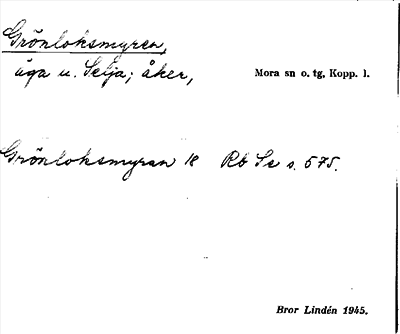 Grönloksmyren,
äga u. Selja; åker,
Mora sn o. tg, Kopp. l.
Grönloksmyran R Rb Se s. 575.
Bror Lindén 1945.